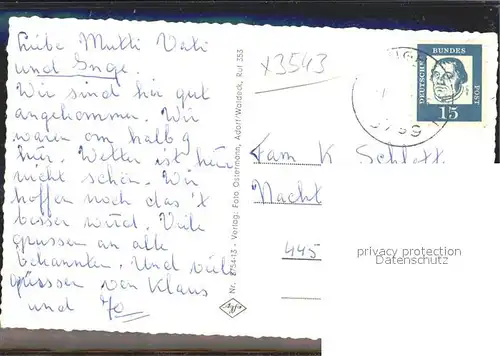 Liebe Mutti Vati
und Inge.
Wir sind hir gut
angekommen. Wir
waren om halb 9
hir. Wetter ist heir
nicht schön. Wir
hoffen noch das 't
besser wird. Viele
grussen an alle
bekannten. Und viele
grüsser von Klaus
und
Nr. 8754-13 - Verlag: Foto Ostermann, Adorf/Waldeck, Ruf 355
x3543
DEUTSCHE
BUNDES
POST
15
Fam K Schlett
Nacht
445
privacy protection
Datenschutz